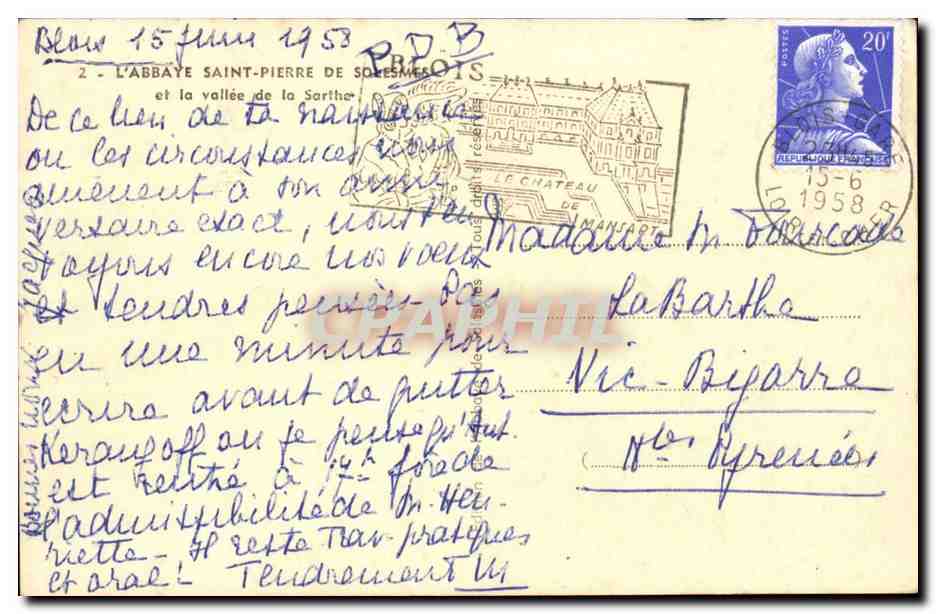 Blois 15 Juin 1958
P.D.B
2 - L'ABBAYE SAINT-PIERRE DE SOLESMES
et la vallée de la Sarthe
De ce lieu de ta naissance
ou les circonstances nous
amènent à son anni
versaire exact, nous t'en
voyons encore nos voeux
et tendres pensées - Pas
eu une minute pour
écrire avant de quitter
Kerangoff ou je pense qu'
est rentré à de
l'admissibilité de M. Hen-
riette - Il reste Trav. pratiques
et oral! Tendrement M
Bonnes
Jacques
Tous droits réservés
BLOIS
LE CHATEAU
DE
MANSART
POSTES
20f
REPUBLIQUE FRANÇAISE
BLOIS GARE
15-6
1958
LOIR-ET-CHER
Madame M Fourcade
LaBarthe
Vic-Bigorre
Htes Pyrenées
CPARAMA CHAPHIL